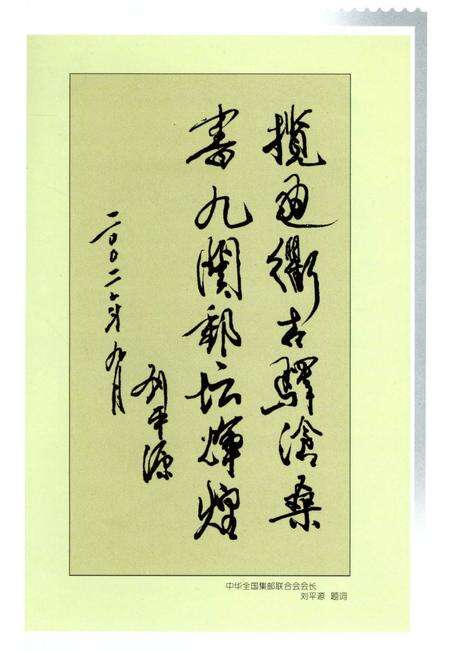 揽通衢古驿沧桑
书九关邮坛辉煌
二〇〇二年九月
刘平源
中华全国集邮联合会会长
刘平源 题词